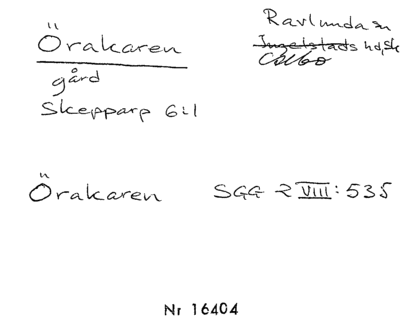 Örakaren
gård
Skepparp 6:1
Ravlunda sn
Ingelstads hd, Sk
Albo
Örakaren SGG R VIII:535
Nr 16404